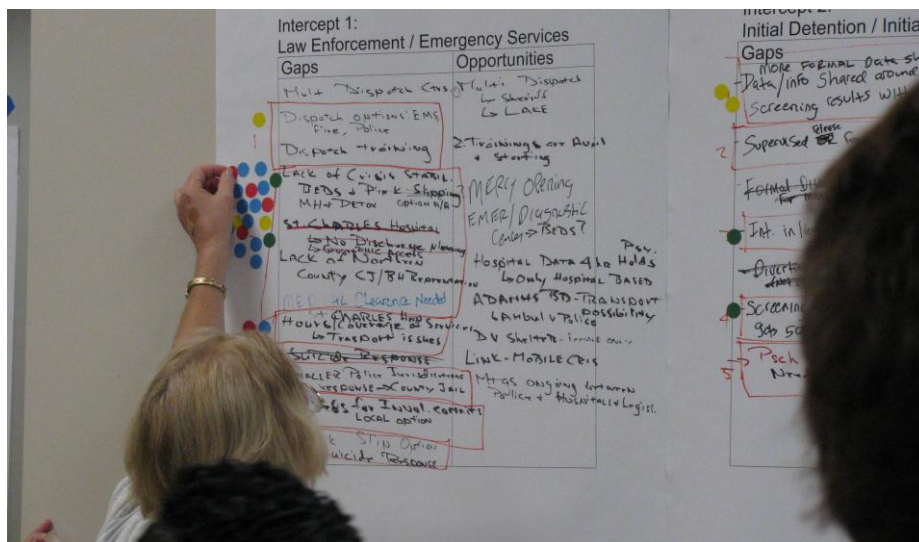 Intercept 1:
Law Enforcement / Emergency Services
Gaps
Mult Dispatch Ctrs.
Dispatch options: EMS
Fire, Police
Dispatch training
Lack of Crisis Stabil.
BEDS + Pink Shopping
MH + DETOX OPTION N/A
St. CHARLES Hospital
No Discharge Planning
Geographic Access
Lack of Northern
County CJ/BH
MEDICAL Clearance Needed
St CHARLES
Hours/Coverage of Services
Transport issues
SUICIDE RESPONSE
Police Jurisdictions
RESPONSE → County Jail
for Invol.
LOCAL OPTION
Slip Option
Suicide RESPONSE
Opportunities
Multi Dispatch
↳ Sheriff
↳ LAKE
2 Trainings are Avail
+ Starting
MERCY Opening
EMER/Diagnostic
Center → BEDS?
Psy.
Hospital DATA 4 Holds
↳ Only Hospital BASED
ADAMHS BD - TRANSPORT
possibility
↳ Ambul v Police
DV Shelter - female only
LINK - MOBILE CRIS
Mtgs ongoing between
Police + Hospitals + Legisl.
Initial Detention / Initia
Gaps
MORE FORMAL Data sh
Data/info Shared around
Screening results with
2
Supervised
Formal
Int. in
Diverti
Screening
4
5
Psch